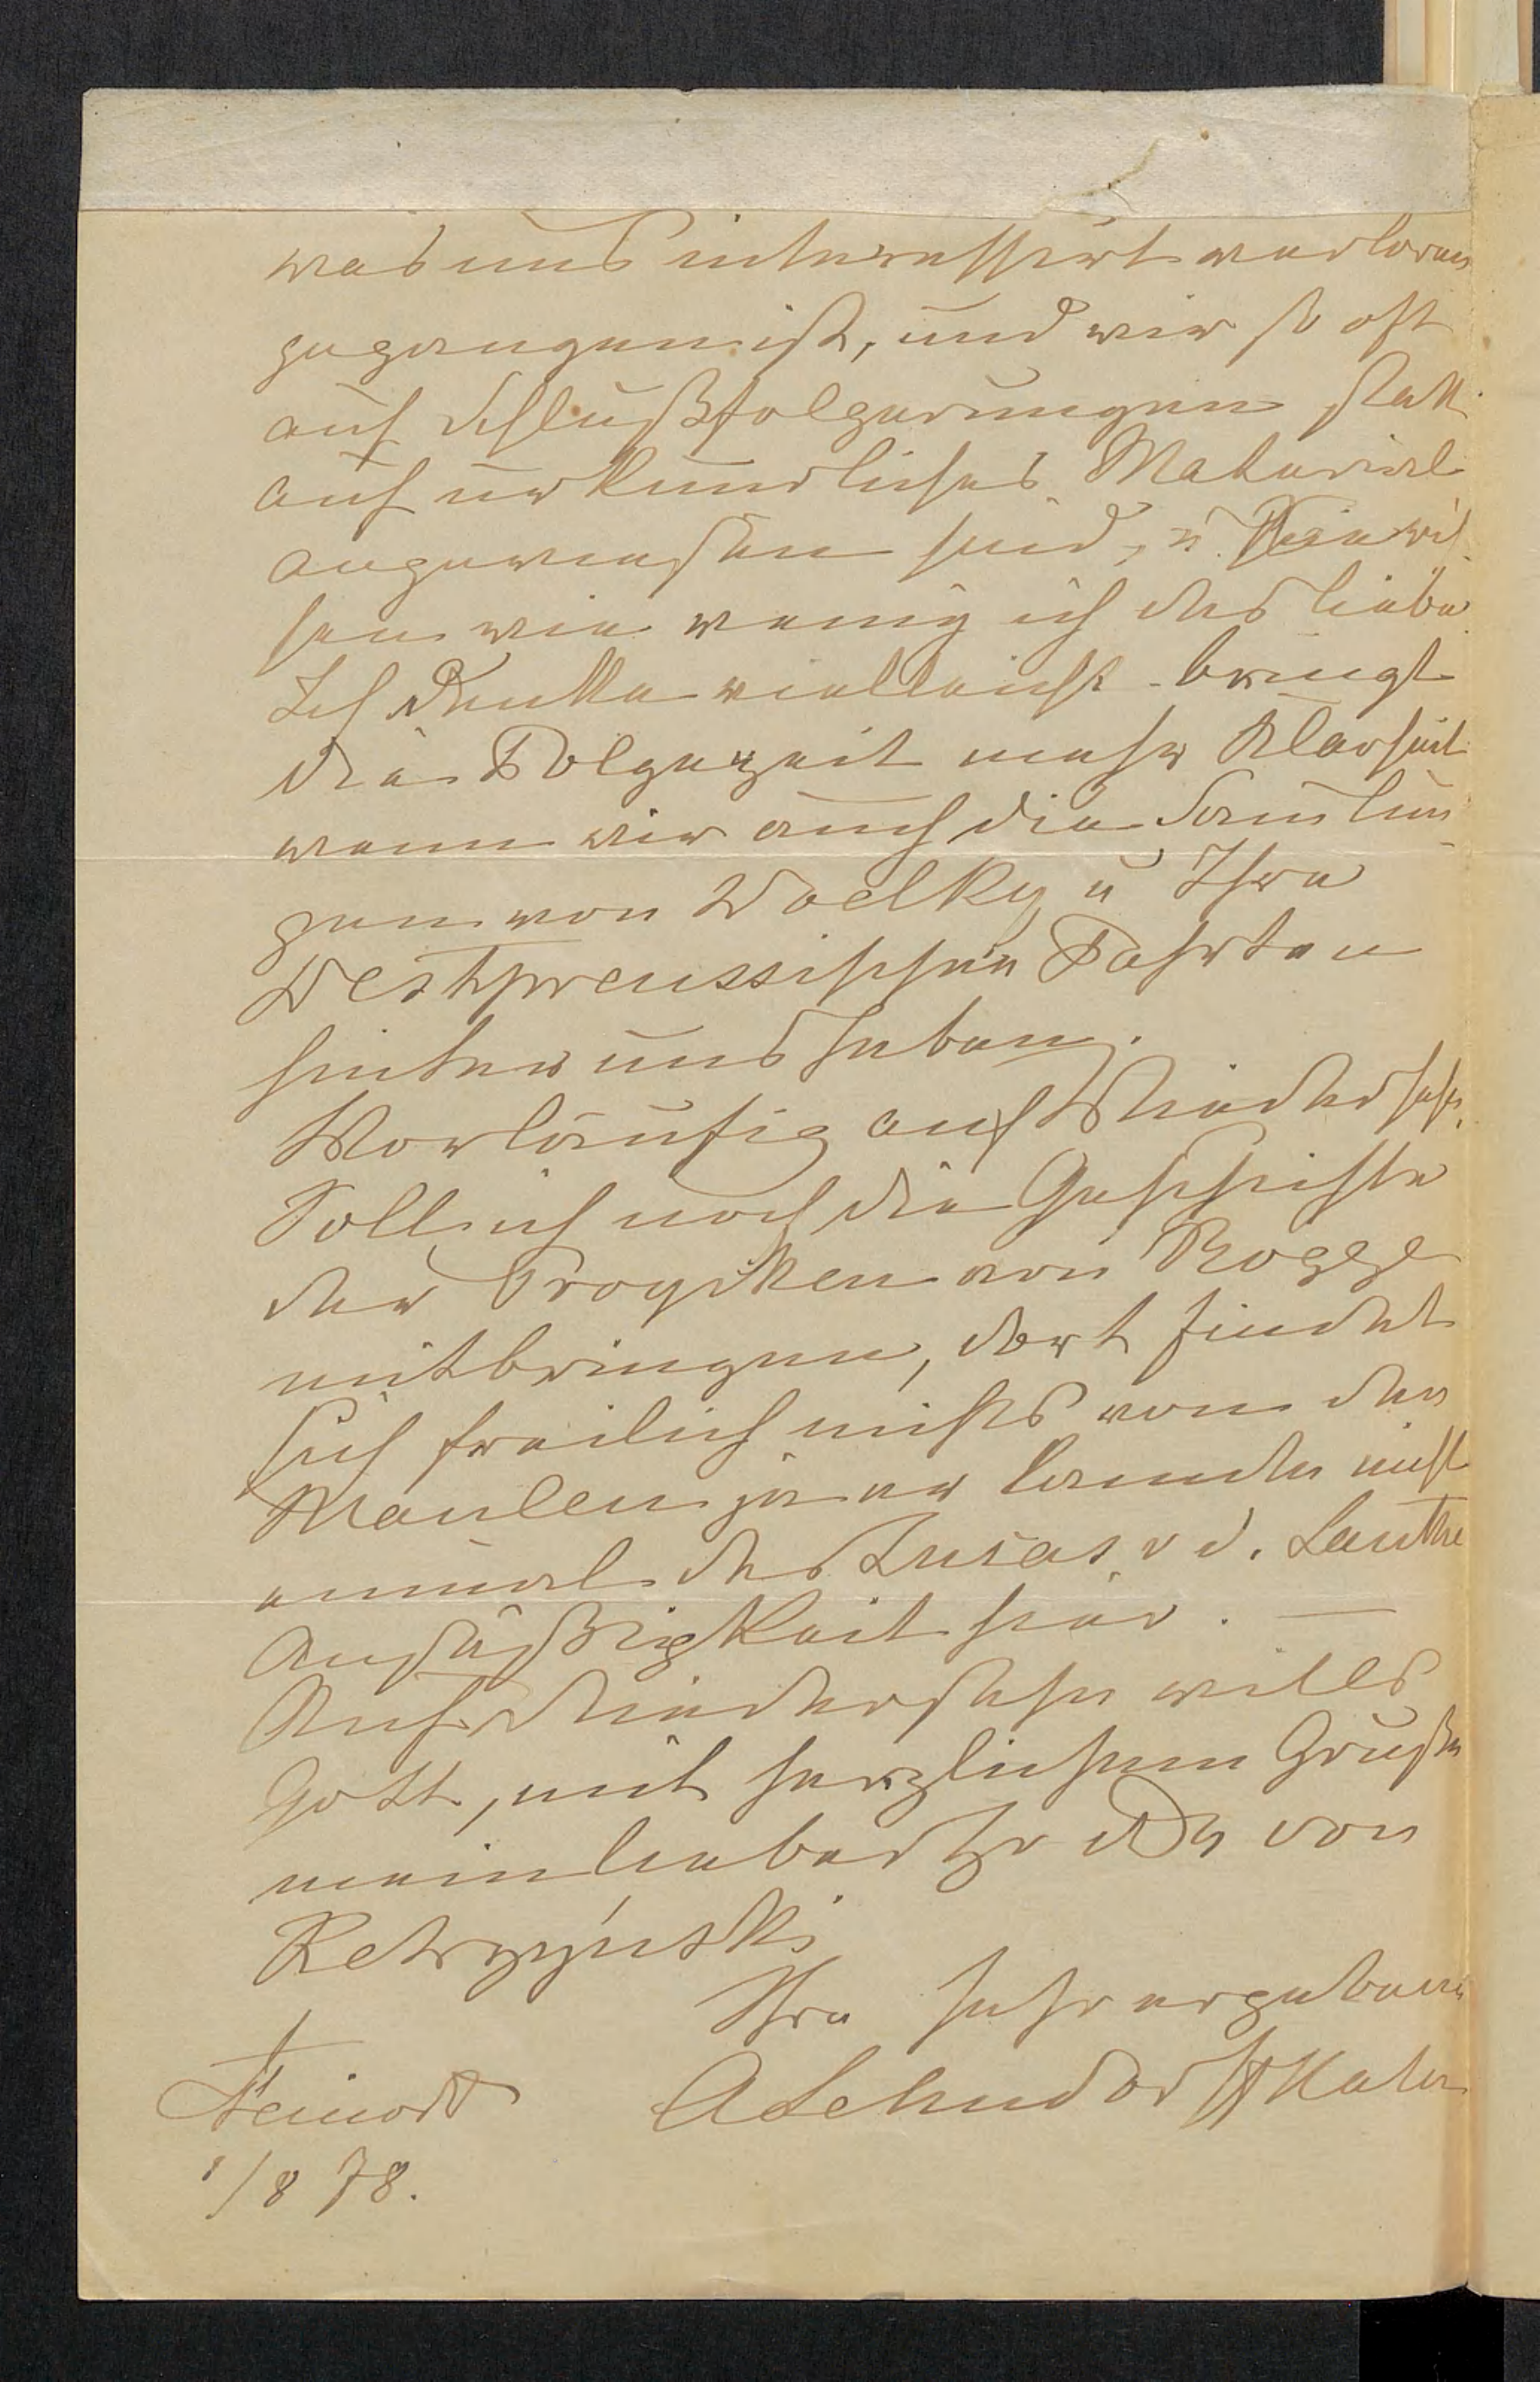 was uns interessirt verloren
gegangen ist, und wir so oft
auf Schlußfolgerungen statt
auf urkundliches Material
angewiesen sind, u. Sie wis-
sen wie wenig ich das liebe
Ich denke vielleicht bringt
die Folgezeit mehr Klarheit
wenn wir auch die Samlun-
gen von Woelky u Ihre
Westpreussischen Fahrten
hinter uns haben.
Vorläufig auf Wiedersehn.
Soll ich noch die Geschichte
der Proyken von Rogge
mitbringen, dort findet
sich freilich nichts von den
Maulen ja er kannte nicht
einmal des Lucas v d.
Ansäßigkeit hier. —
Auf Wiedersehn will's
Gott, mit herzlichem Gruße
mein lieber Hr Dr von
Kętrzyński
Ihre sehr ergebene
A Lehndorff
Steinort
1/8 78.